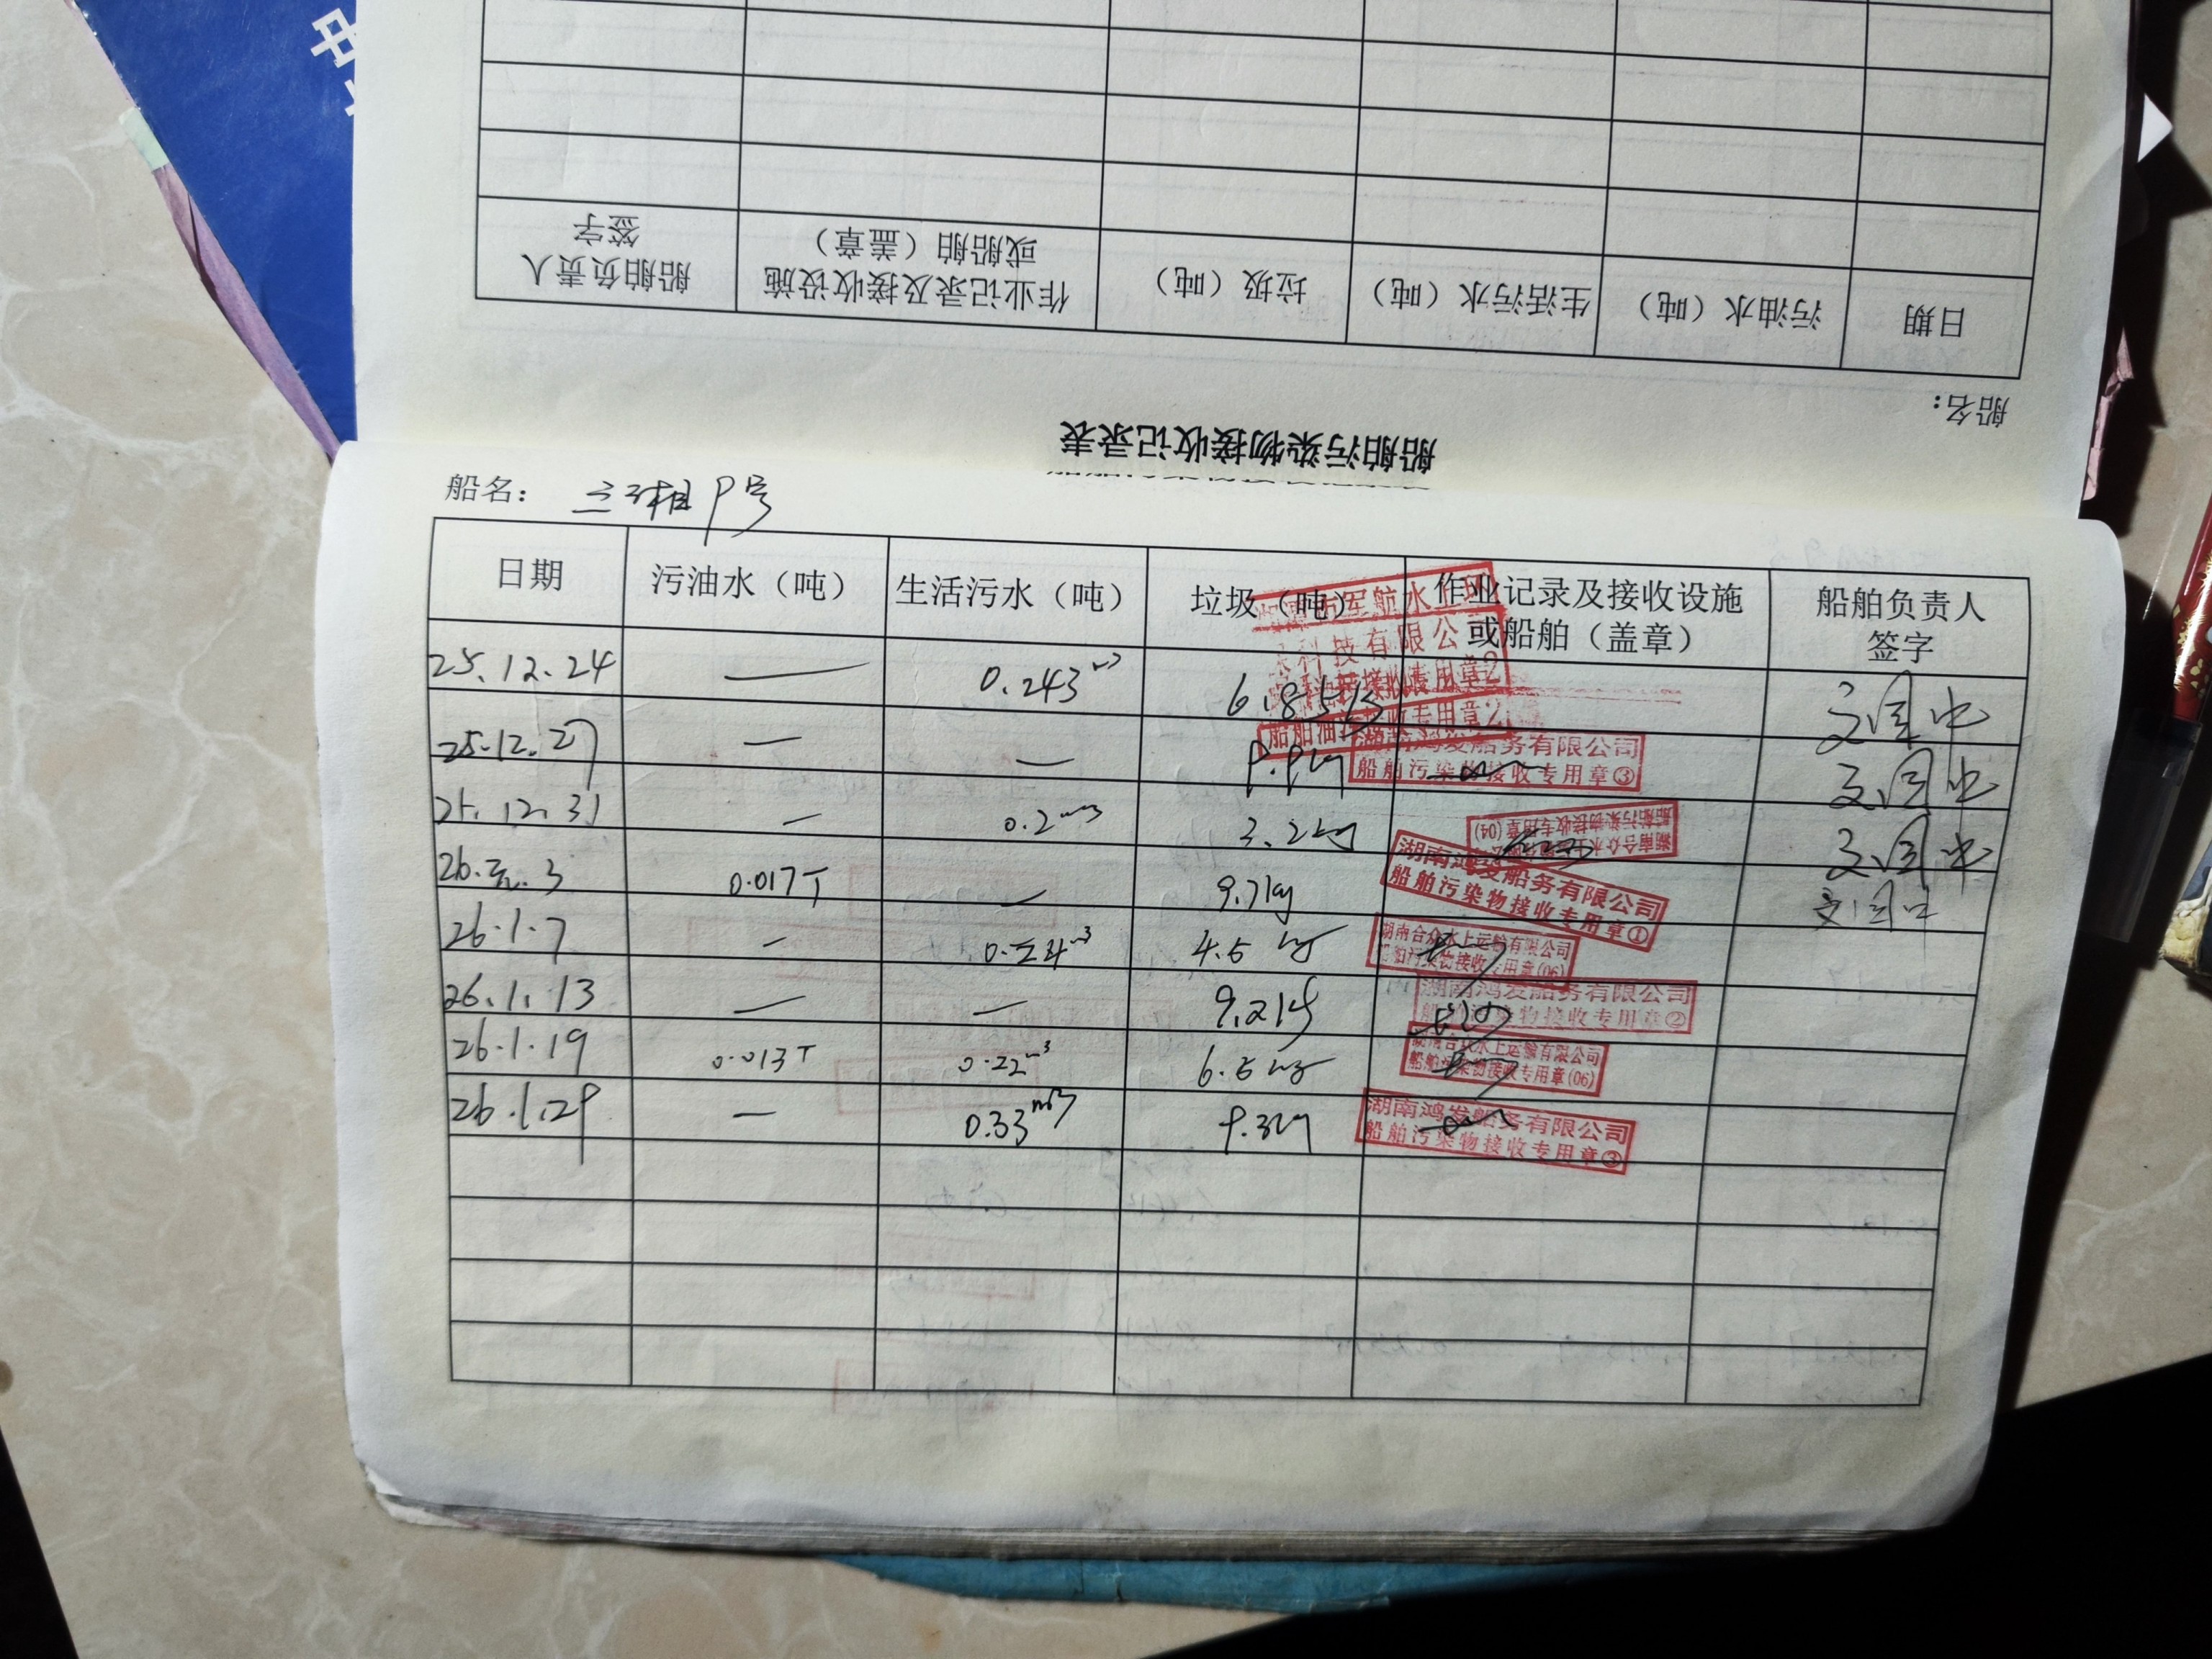 船舶负责人
签字
作业记录及接收设施
或船舶（盖章）
垃圾（吨）
生活污水（吨）
污油水（吨）
日期
船名：
船舶污染物接收记录表
船名： 三湘9号
日期 污油水（吨） 生活污水（吨） 垃圾（吨） 作业记录及接收设施
或船舶（盖章） 船舶负责人
签字
军航水上
科技有限公
接收专用章2
船舶油 接收专用章2
25.12.24 — 0.243m3 6.85kg
25.12.27 — — 9.9kg 湖南鸿发船务有限公司
船舶污染物接收专用章③
25.12.31 — 0.2m3 3.2kg 湖南合众水上运输有限公司
船舶污染物接收专用章(04)
26.元.3 0.017T — 9.7kg 湖南鸿发船务有限公司
船舶污染物接收专用章①
26.1.7 — m3 4.5kg 湖南合众水上运输有限公司
船舶污染物接收专用章(06)
26.1.13 — — 9.2kg 湖南鸿发船务有限公司
船舶污染物接收专用章②
26.1.19 0.013T 0.22m3 6.5kg 湖南合众水上运输有限公司
船舶污染物接收专用章(06)
26.1.29 — 0.33m3 9.3kg 湖南鸿发船务有限公司
船舶污染物接收专用章③